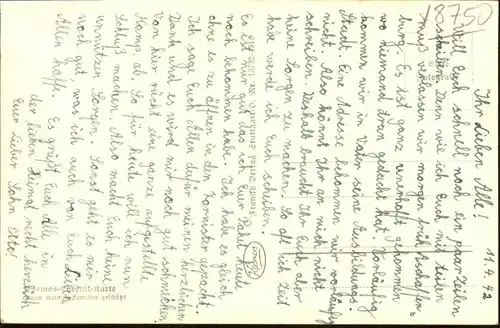 18750
11.4.42
Ihr lieben Alle!
Will Euch schnell noch ein paar Zeilen
schreiben. Denn wie ich Euch mit teilen
muß verlassen wir morgen früh Aschaffen-
burg. Es ist ganz unverhofft gekommen
wo niemand dran gedacht hat. Vorläufig
kommen wir in Vater seine Ausbildungs-
stadt. Eine Adresse bekommen wir vorläufig
nicht. Also könnt Ihr an mich nicht
schreiben. Deshalb braucht Ihr Euch aber
keine Sorgen zu machen. So oft ich Zeit
habe werde ich Euch schreiben.
Es ist nur gut das ich Euer Paket heute
noch bekommen habe. Ich habe es gleich
ohne es zu öffnen in den Tornister gepackt.
Ich sage Euch Allen dafür meinen herzlichen
Dank und es wird mir noch gut schmecken.
Von hier rückt eine ganze aufgestellte
Komp. ab. So für heute will ich nun
Schluß machen. Also macht Euch keine
unnützen Sorgen. Sonst geht es mir
noch gut was ich auch von Euch
Allen hoffe. Es grüßt Euch Alle in
der lieben Heimat recht herzlich
Euer lieber Sohn Otto!